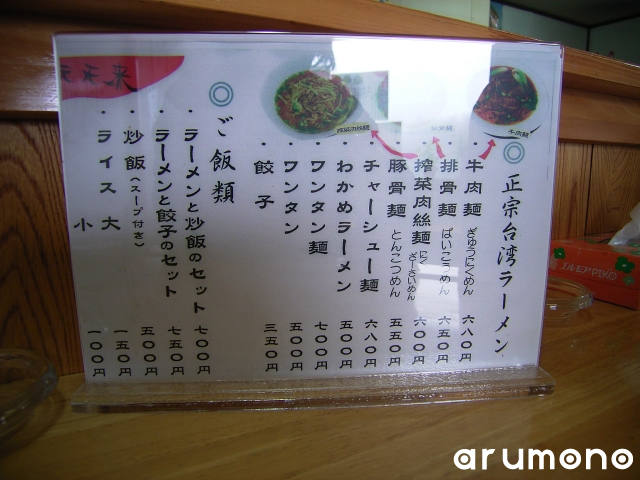 正宗台湾ラーメン
牛肉麺 ぎゅうにくめん 六八〇円
排骨麺 ぱいこうめん 六五〇円
搾菜肉絲麺 ざーさいにくめん 六〇〇円
豚骨麺 とんこつめん 五五〇円
チャーシュー麺 六八〇円
わかめラーメン 五〇〇円
ワンタン麺 七〇〇円
ワンタン 五〇〇円
餃子 三五〇円
ご飯類
ラーメンと炒飯のセット 七〇〇円
ラーメンと餃子のセット 七五〇円
炒飯(スープ付き) 五〇〇円
ライス大 一五〇円
小 一〇〇円
牛肉麺
エルモア PiKO
arumono